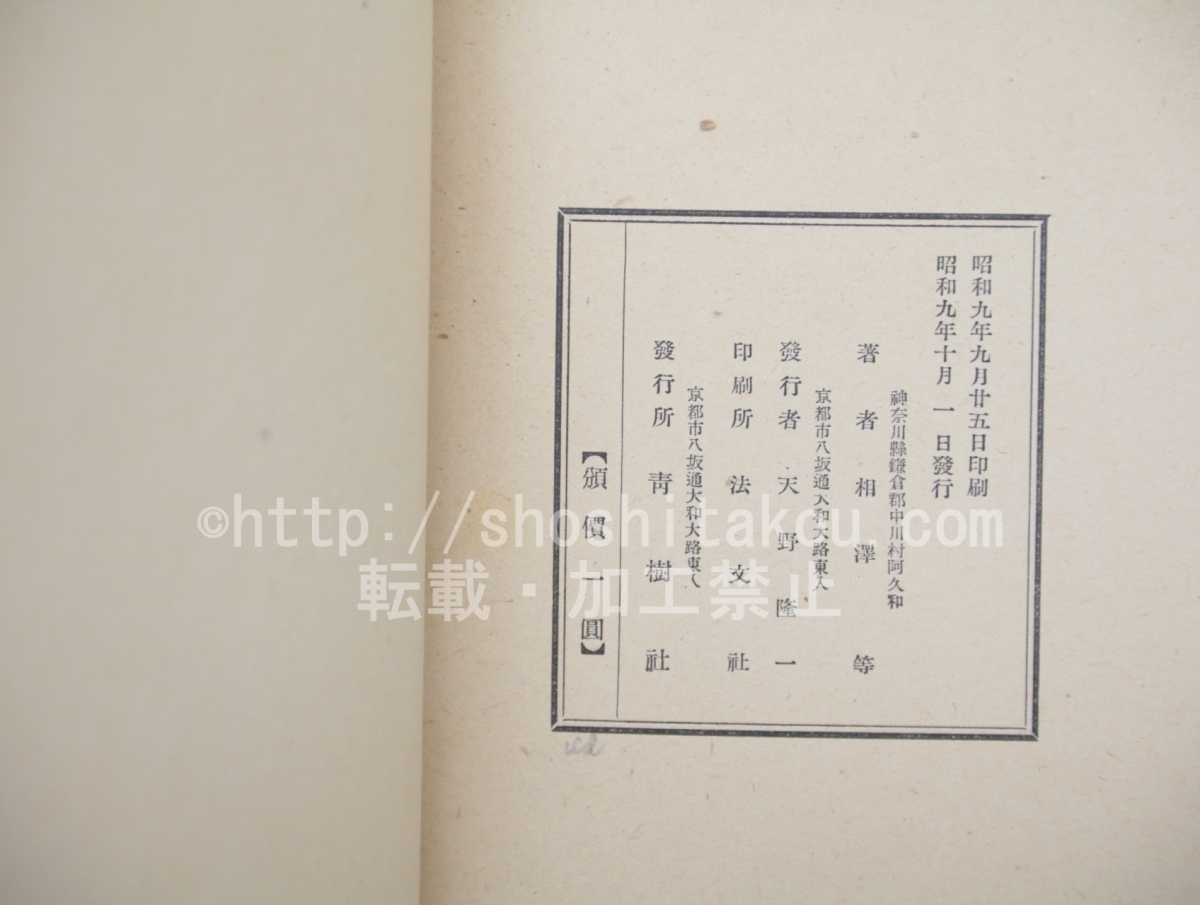 昭和九年九月廿五日印刷
昭和九年十月一日發行
神奈川縣鎌倉郡中川村阿久和
著者 相澤等
京都市八坂通大和大路東入
發行者 天野隆一
印刷所 法文社
京都市八坂通大和大路東入
發行所 靑樹社
【頒價一圓】
©http://shoshitakou.com
転載・加工禁止